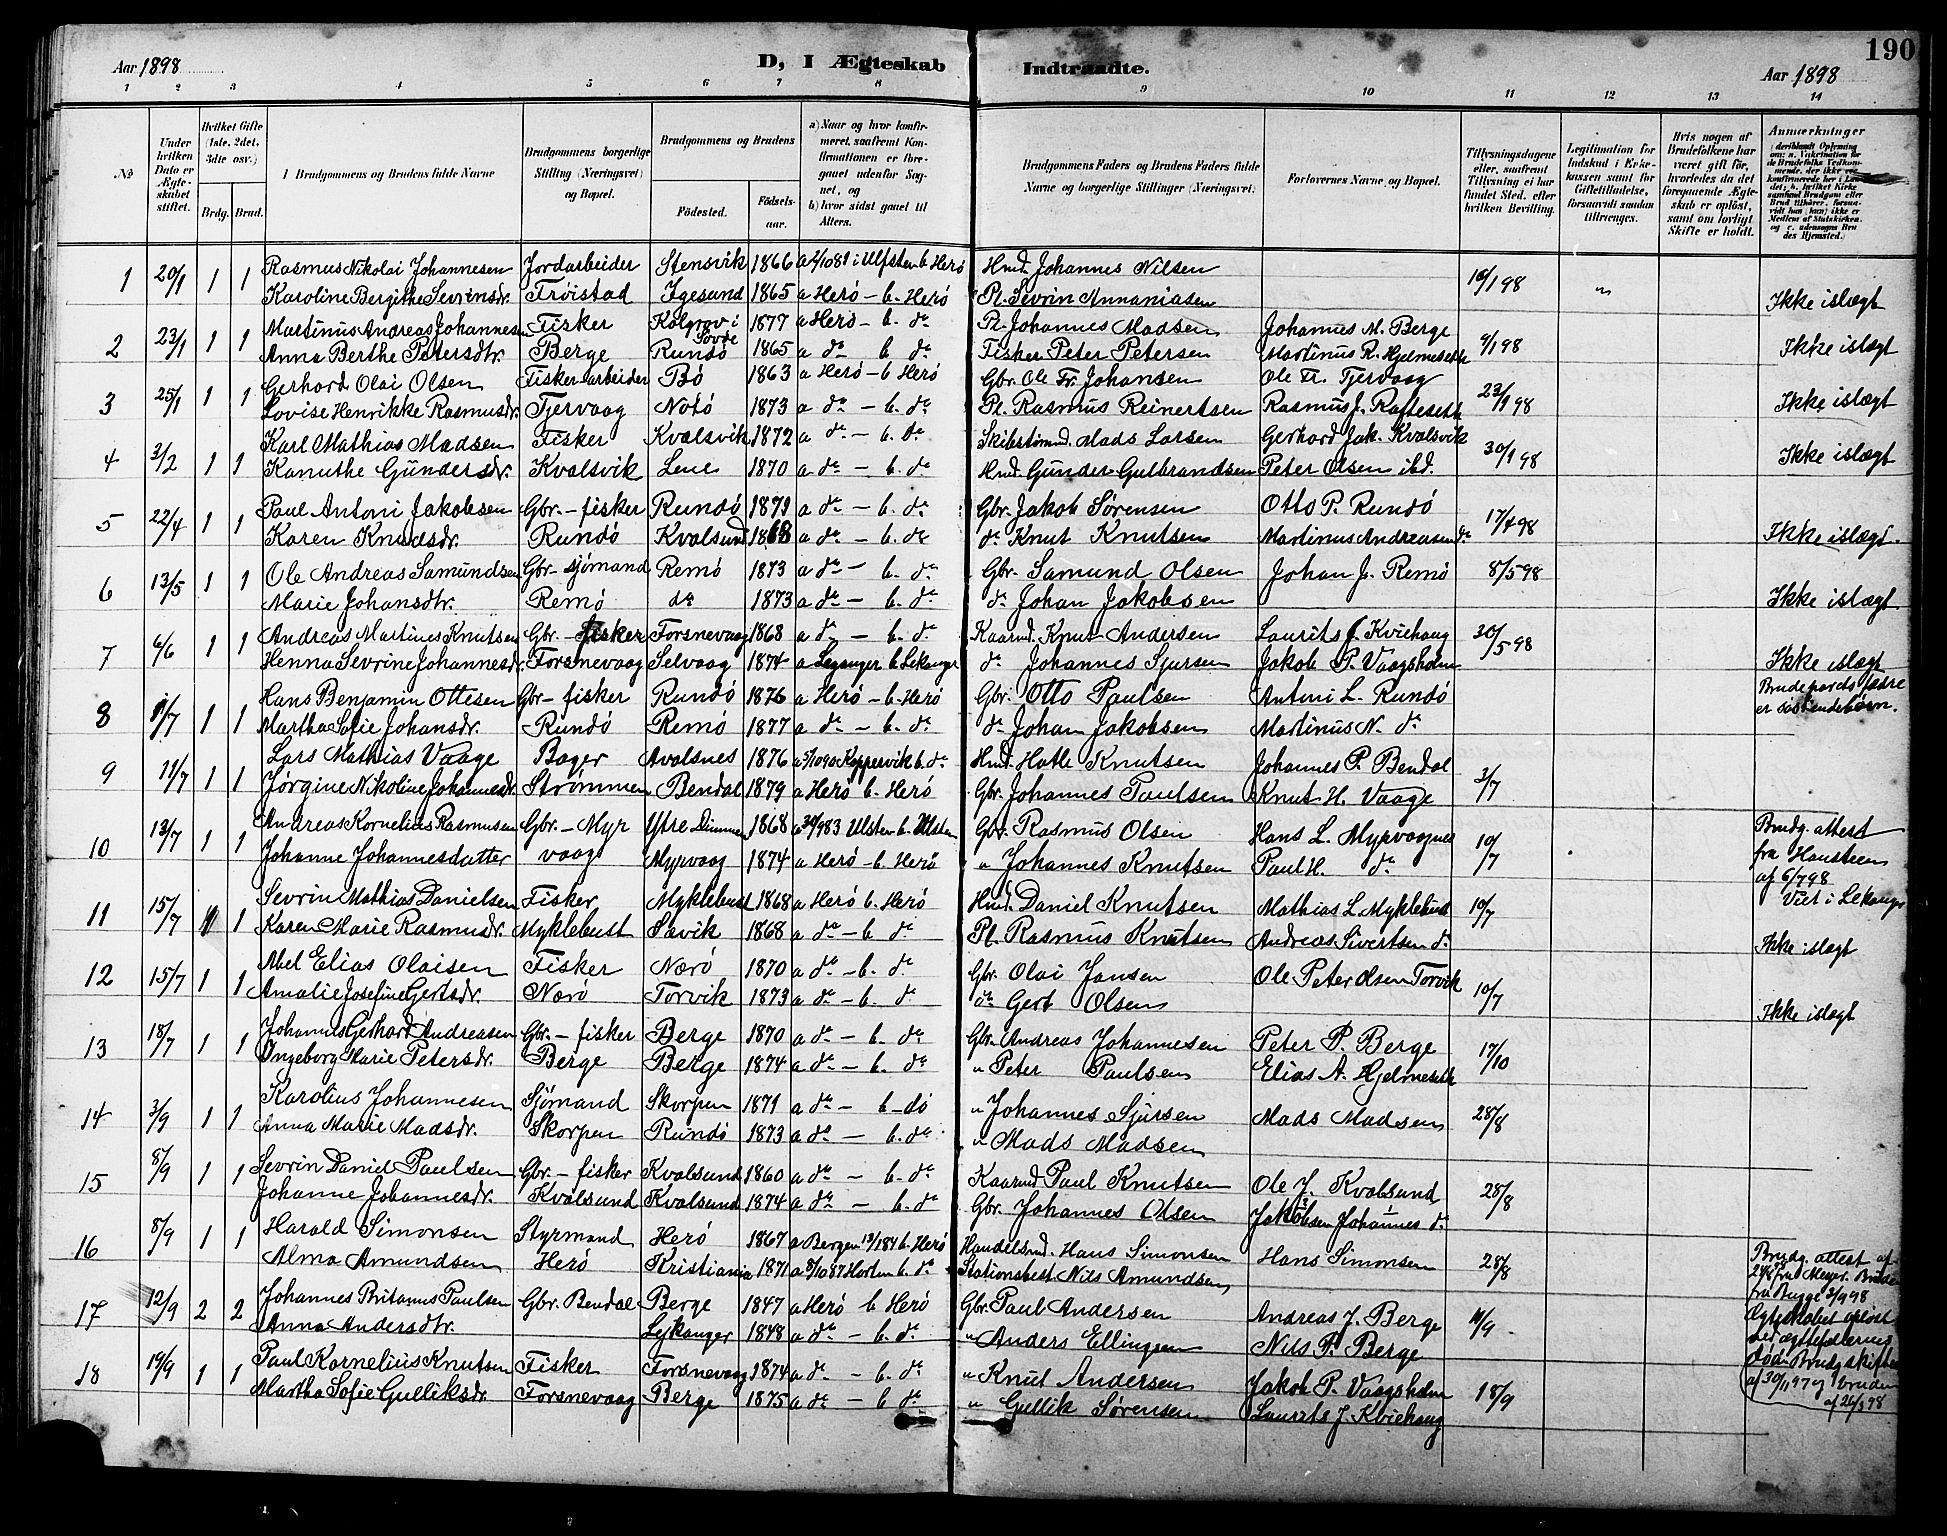 190
Aar 1898
D, I Ægteskab Indtraadte.
Aar 1898
1 2 3 4 5 6 7 8 9 10 11 12 13 14
No
Under hvilken Dato er Ægteskabet stiftet.
Hvilket Gifte (1ste, 2det, 3die osv.)
Brdg. Brud.
1 Brudgommens og Brudens fulde Navne
Brudgommens borgerlige Stilling (Næringsvei) og Bopæl.
Brudgommens og Brudens
Fødested. Fødselsaar.
a) Naar og hvor konfirmeret, saafremt Konfirmationen er foregaaet udenfor Sognet, og
b) hvor sidst gaaet til Alters.
Brudgommens Faders og Brudens Faders fulde Navne og borgerlige Stillinger (Næringsvei).
Forlovernes Navne og Bopæl.
Tillysningsdagene eller, saafremt Tillysning ei har fundet Sted, efter hvilken Bevilling.
Legitimation for Indskud i Enkekassen samt for Giftetilladelse, forsaavidt saadan tiltrænges.
Hvis nogen af Brudefolkene har været gift før, hvorledes da det foregaaende Ægteskab er opløst, samt om lovligt Skifte er holdt.
Anmærkninger
1 20/1 1 1 Rasmus Nikolai Johannesen Jordarbeider Stensvik 1866 a 2/10 81 i Ulfsten b. Herø Hmd. Johannes Nilsen 16/1 98 "
Karoline Bergithe Sevrinsdr. Frøistad Igesund 1865 a Herø - b. Herø Pl. Sevrin Annaniasen Ikke islægt
2 23/1 1 1 Martinus Andreas Johannesen Fisker Kolgrov i Søvde 1877 a Herø - b. do Pl. Johannes Madsen Johannes M. Berge 9/1 98
Anna Berthe Petersdtr. Berge Rundø 1865 a do b. do Fisker Peter Petersen Martinus R. Hjelmeseth Ikke islægt
3 25/1 1 1 Gerhard Olai Olsen Fisker arbeider Bø 1863 a Herø - b Herø Gbr. Ole Fr. Johansen Ole Fr. Tjervaag 23/1 98
Lovise Henrikke Rasmusdr. Tjervaag Notø 1873 a do - b. do Pl. Rasmus Reinertsen Rasmus J. Rafteseth Ikke islægt
4 3/2 1 1 Karl Mathias Madsen Fisker Kvalsvik 1872 a do - b. do Skibstømmd. Mads Larsen Gerhard Jak. Kvalsvik 30/1 98
Kanuthe Gundersdr. Kvalsvik Leine 1870 a do - b. do Hmd. Gunder Gulbrandsen Peter Olsen ibd. Ikke islægt
5 22/4 1 1 Paul Antoni Jakobsen Gbr. - fisker Rundø 1871 a do - b. do Gbr. Jakob Sørensen Otto P. Rundø 17/4 98
Karen Knudsdr. Rundø Kvalsund 1868 a do - b. do do Knut Knutsen Martinus Andreasen do Ikke islægt.
6 13/5 1 1 Ole Andreas Samundsen Gbr. - sjømand Remø 1873 a do - b. do Gbr. Samund Olsen Johan J. Remø 8/5 98
Marie Johansdtr. Remø do 1873 a do - b. do do Johan Jakobsen Ikke islægt
7 6/6 1 1 Andreas Martines Knutsen Gbr. - fisker Forsnevaag 1868 a do - b. do Kaarmd. Knut Andersen Laurits J. Kviehaug 30/5 98
Henna Sevrine Johannesdr. Forsnevaag Selvaag 1874 a Leganger b Lekanger do Johannes Sjursen Jakob P. Vaagsholm Ikke islægt
8 11/7 1 1 Hans Benjamin Ottesen Gbr - fisker Rundø 1876 a Herø - b. Herø Gbr. Otto Paulsen Antoni L. Rundø Brudepardets fædre er søskendebørn.
Martha Sofie Johansdr. Rundø Remø 1877 a do - b. do do Johan Jakobsen Martinus N. do
9 11/7 1 1 Lars Mathias Vaage Bager Avalsnes 1876 a 5/10 90 Koppervik b. do Hmd. Hatle Knutsen Johannes P. Bendal 3/7
Jørgine Nikoline Johannesdr. Strømmen Bendal 1879 a Herø b. Herø Gbr. Johannes Paulsen Knut H. Vaage
10 13/7 1 1 Andreas Kornelius Rasmusen Gbr. - Myrvaag Ytre Dimmen 1868 a 30/9 83 Ulsten b. Ulsten Gbr. Rasmus Olsen Hans L. Myrvaagnes 10/7 Brudg. attest fra Hausteen af 6/7 98
Johanne Johannesdatter Myrvaag 1874 a Herø - b. Herø " Johannes Knutsen Paul H. do
11 15/7 1 1 Sevrin Mathias Danielsen Fisker Myklebust 1868 a Herø b. Herø Hmd. Daniel Knutsen Mathias L. Myklebust 10/7 Viet i Lekanger
Karen Marie Rasmusdr. Myklebust Savik 1868 a do - b do Pl. Rasmus Knutsen Andreas Sivertsen do Ikke islægt
12 15/7 1 1 Abel Elias Olaisen Fisker Nærø 1870 a do - b. do Gbr. Olai Jansen Ole Peter Olsen Torvik 10/7
Amalie Josefine Gertsdr. Nærø Torvik 1873 a do - b. do do Gert Olsen Ikke islægt
13 18/7 1 1 Johannes Gerhard Andreasen Gbr. - fisker Berge 1870 a do - b. do Gbr. Andreas Johannesen Peter P. Berge 17/10
Ingeborg Marie Petersdr. Berge Berge 1874 a do - b. do " Peter Paulsen Elias A. Hjelmeseth
14 3/9 1 1 Karolius Johannesen Sjømand Skorpen 1871 a do - b - do " Johannes Sjursen Mads Madsen 28/8
Anna Marie Madsdr. Skorpen Rundø 1873 a do - b. do " Mads Madsen
15 8/9 1 1 Sevrin Daniel Paulsen Gbr. - fisker Kvalsund 1860 a do - b. do Kaarmd Paul Knutsen Ole J. Kvalsund 28/8
Johanne Johannesdr. Kvalsund Kvalsund 1874 a do - b. do Gbr. Johannes Olsen Jakobsen Johannes do
16 8/9 1 1 Harald Simonsen Styrmand Herø 1867 a Bergen b. Herø Handelsmd. Hans Simonsen Hans Simonsen 28/8
Alma Amundsen Herø Kristiania 1871 a 2/10 87 Horten b. do Stationsbest. Nils Amundsen, Brudg. attest af fra Meyer. Bruden fra Bugge 3/9 98
17 12/9 2 2 Johannes Britanus Paulsen Gbr. Bendal Berge 1847 a Herø b Herø Gbr. Paul Andersen Andreas J. Berge 11/9 Ægteskabet opløst ved ægtefællernes død. Brudg skifte af 30/1 97 og bruden af 26/3 98
Anna Andersdtr. Lejkanger 1848 a do - b. do " Anders Ellingsen Nils P. Berge
18 19/9 1 1 Paul Kornelius Knutsen Fisker Forsnevaag 1874 a do - b. do " Knut Andersen Jakob P. Vaagsholm 18/9
Martha Sofie Gulliksdr. Forsnevaag Berge 1875 a do - b do " Gullik Sørensen Laurits J. Kviehaug